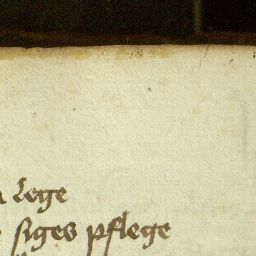 lege
siges pflege